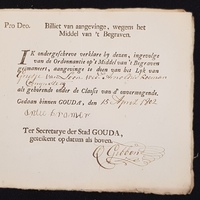 Pro Deo. Billiet van aangevinge, wegens het
Middel van 't Begraven.
IK ondergeschreve verklare by dezen, ingevolge
van de Ordonnantie op 't Middel van 't Begraven
geëmaneert, aangevinge te doen van het Lyk van
als gehorende onder de Classis van d' onvermogende.
Gedaan binnen GOUDA, den 15 April 1802
Ter Secretarye der Stad GOUDA,
geteikent op datum als boven.